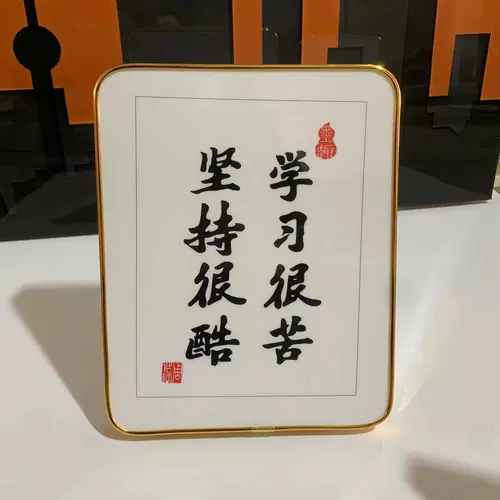 学习很苦
坚持很酷